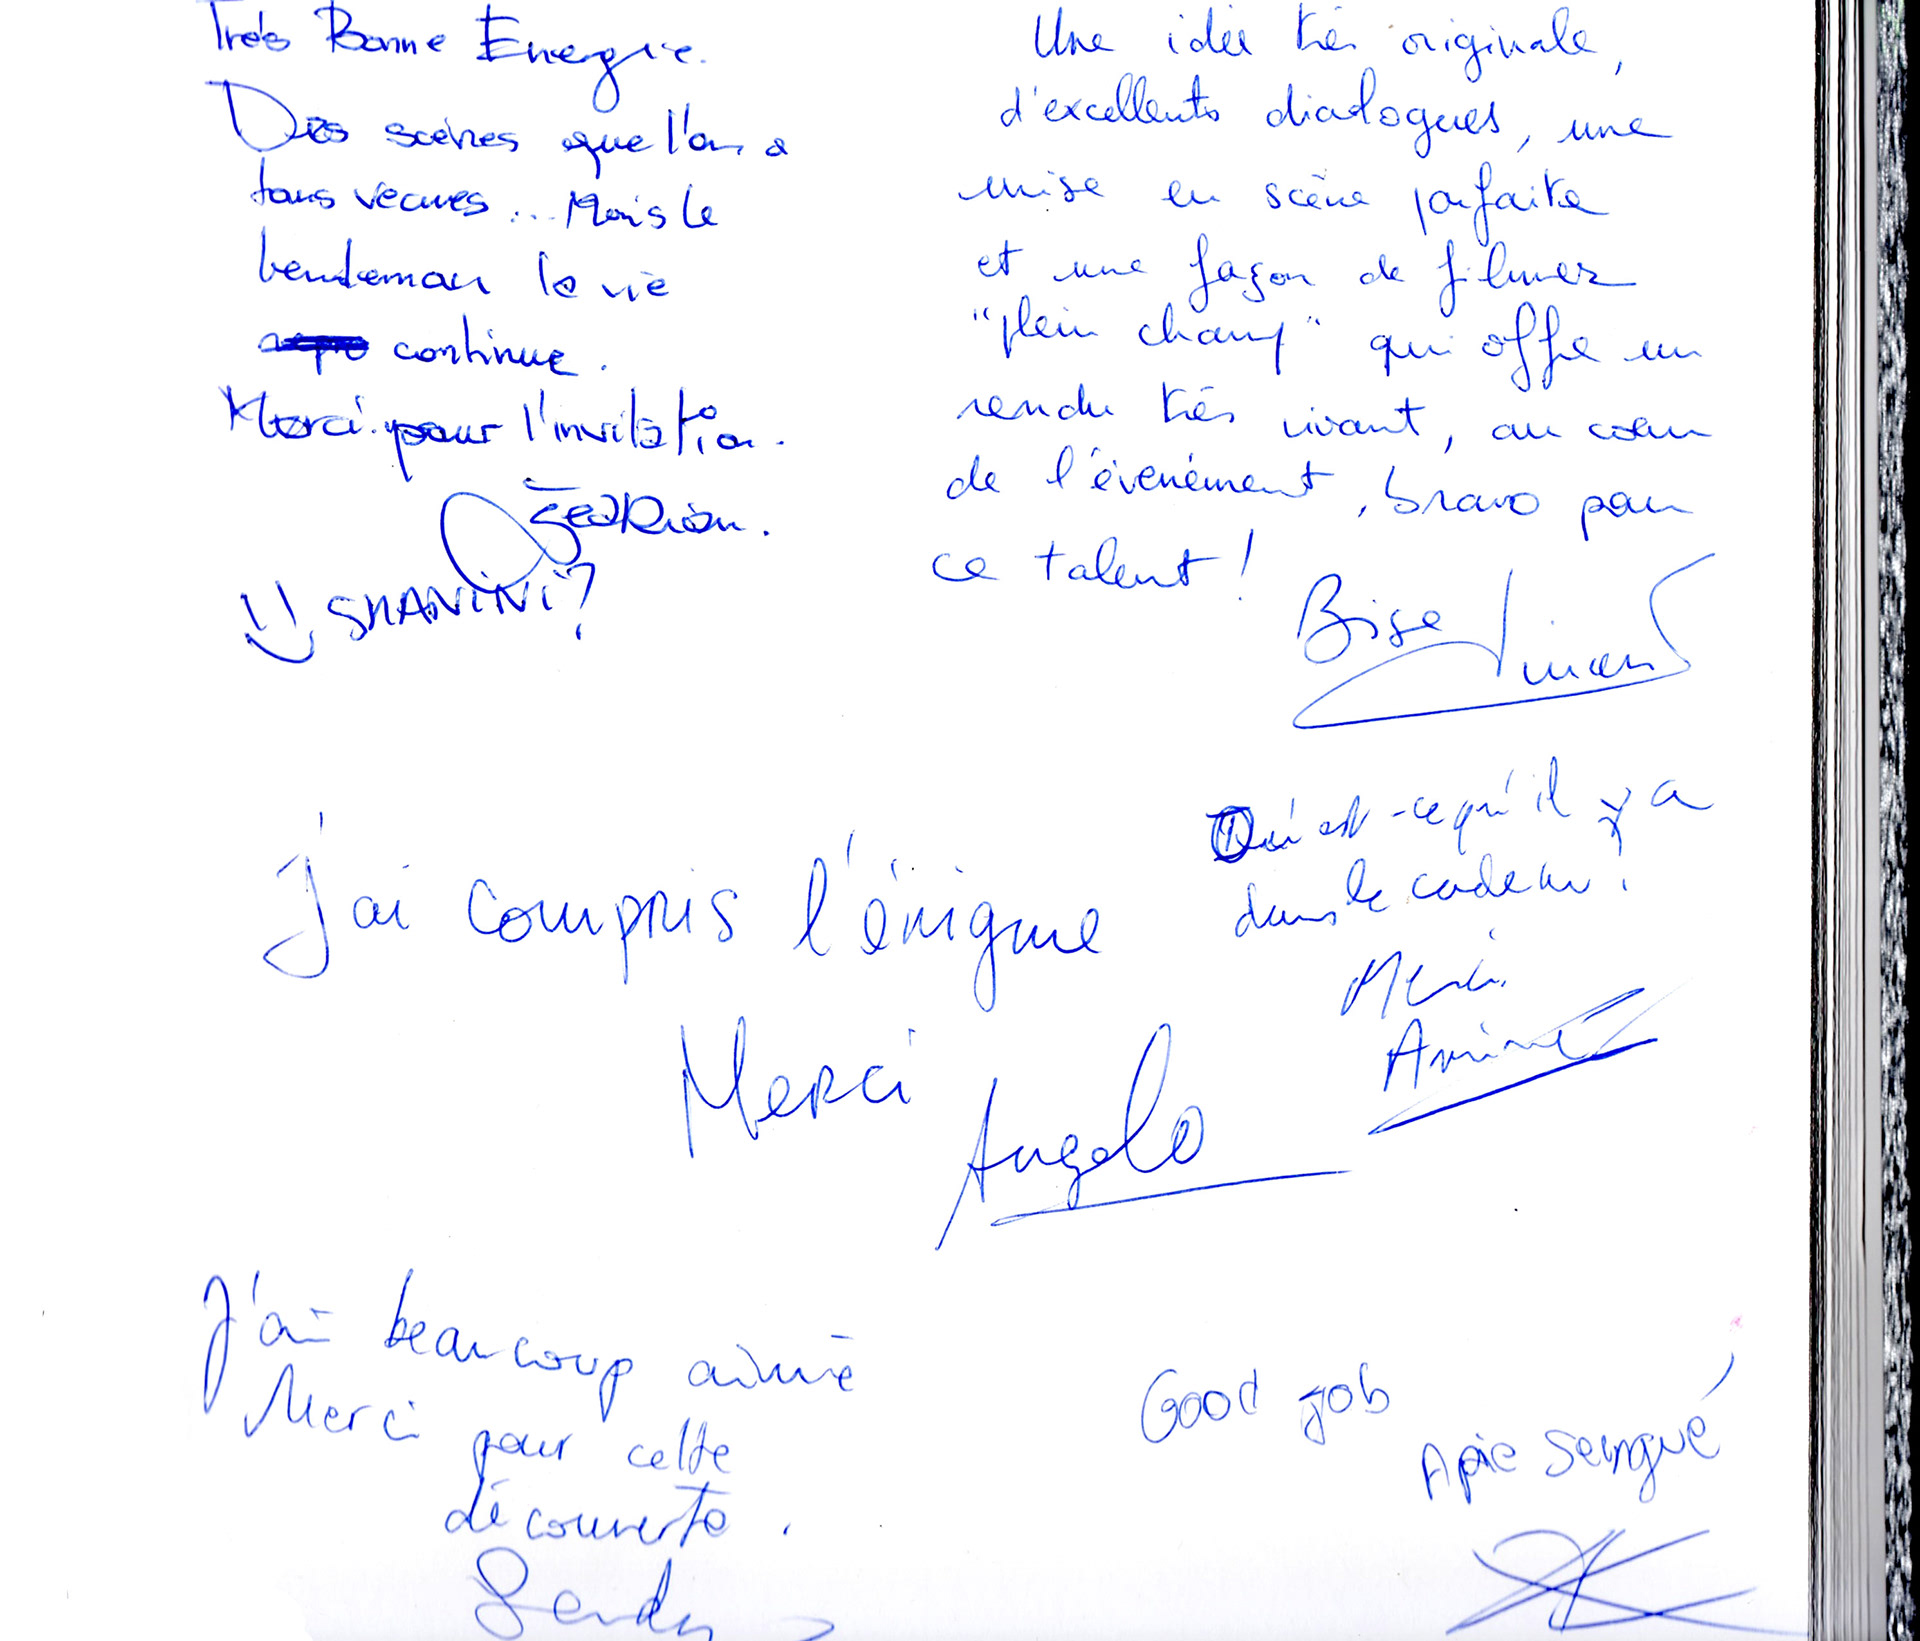 Très Bonne Energie.
Des scènes que l'on a
tous vécues... Mais le
lendemain la vie
continue.
Merci pour l'invitation.
SHANINI?
Une idée très originale,
d'excellents dialogues, une
mise en scène parfaite
et une façon de filmer
"plein champ" qui offre un
rendu très vivant, au cœur
de l'évenément, bravo pour
ce talent!
Bise
Qu'est-ce qu'il y a
dans le cadeau?
Merci.
Amine
J'ai compris l'énigme
Merci
Angelo
J'ai beaucoup aimé
Merci pour cette
découverte.
Sendy
Good job
Apie Sengué